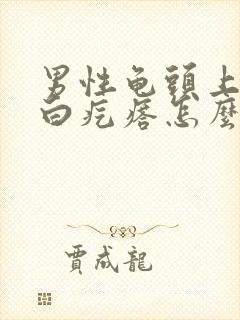 男性龟頭上
白疙瘩怎麽
賈成龍